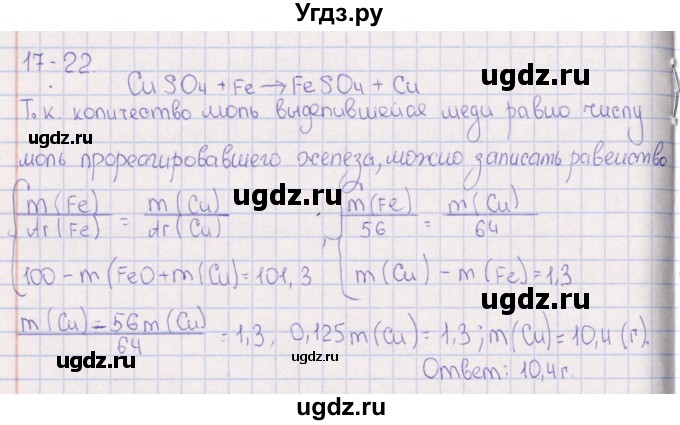 Угдз.ру
17-22.
CuSO4 + Fe → FeSO4 + Cu
Т.к. количество моль выделившейся меди равно числу
моль прореагировавшего железа, можно записать равенство
ugdz.ru ugdz.ru
m(Fe)/Ar(Fe) = m(Cu)/Ar(Cu) ; m(Fe)/56 = m(Cu)/64
100 - m(FeO + m(Cu) = 101,3 m(Cu) - m(Fe) = 1,3
ugdz.ru
m(Cu) = 56m(Cu)/64 = 1,3, 0,125m(Cu) = 1,3; m(Cu) = 10,4 (г).
ugdz.ru ugdz.ru
Ответ: 10,4г.
ugdz.ru